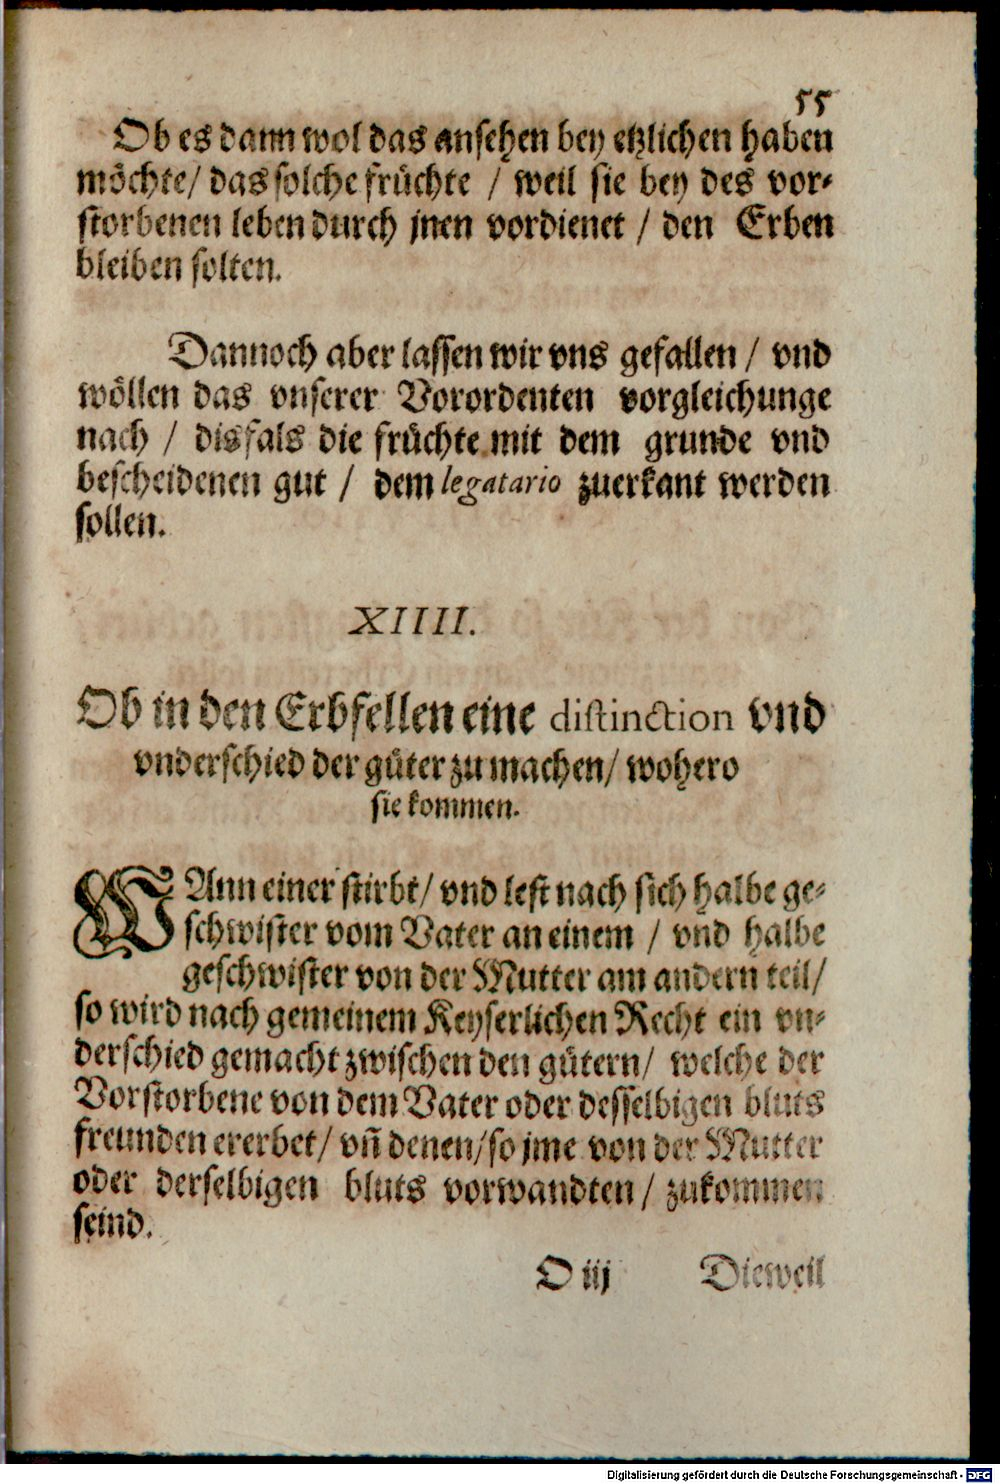 55
Ob es dann wol das ansehen bey etzlichen haben
möchte/ das solche früchte / weil sie bey des vor-
storbenen leben durch jnen vordienet / den Erben
bleiben solten.
Dannoch aber lassen wir vns gefallen / vnd
wöllen das vnserer Vorordenten vorgleichunge
nach / disfals die früchte mit dem grunde vnd
bescheidenen gut / dem legatario zuerkant werden
sollen.
XIIII.
Ob in den Erbfellen eine distinction vnd
vnderschied der güter zu machen/ wohero
sie kommen.
WAnn einer stirbt/ vnd lest nach sich halbe ge-
schwister vom Vater an einem / vnd halbe
geschwister von der Mutter am andern teil/
so wird nach gemeinem Keyserlichen Recht ein vn-
derschied gemacht zwischen den gütern/ welche der
Vorstorbene von dem Vater oder desselbigen bluts
freunden ererbet/ vñ denen/ so jme von der Mutter
oder derselbigen bluts vorwandten/ zukommen
seind.
O iij Dieweil
Digitalisierung gefördert durch die Deutsche Forschungsgemeinschaft - DFG